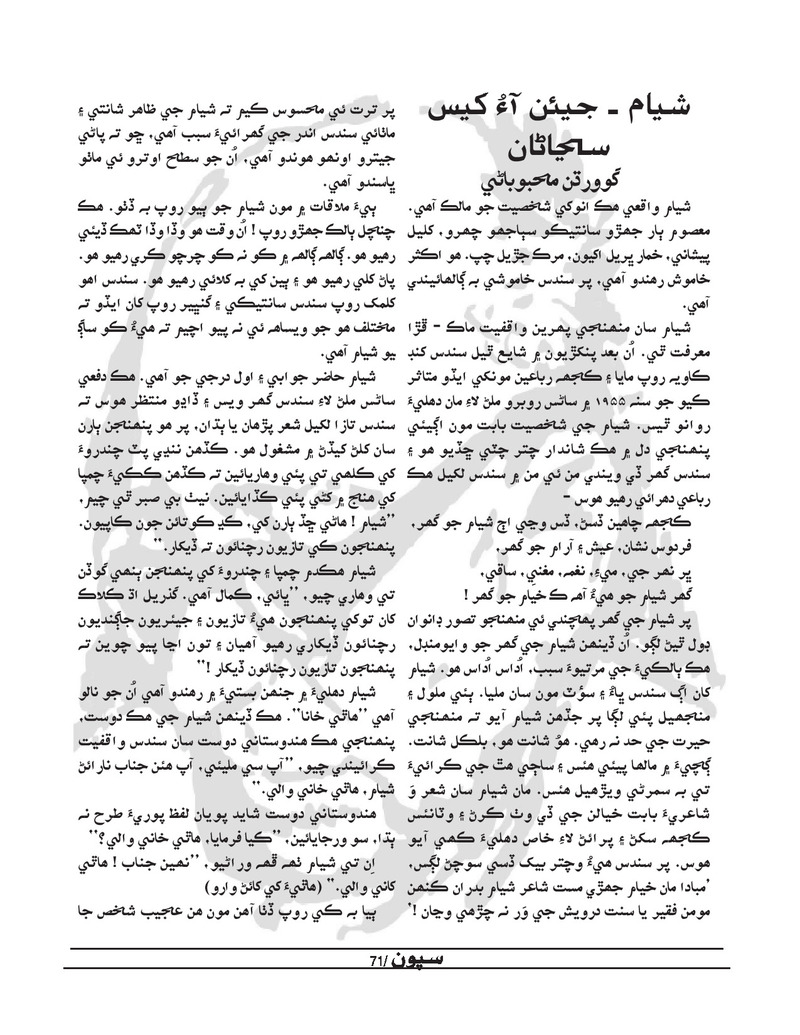 شيام ـ جيئن آءُ کيس
سڃاڻان
گوورڌن محبوباڻي
شيام واقعي هڪ انوکي شخصيت جو مالڪ آهي.
معصوم ٻار جهڙو سانتيڪو سٻاجهو چهرو، کليل
پيشاني، خمار ڀريل اکيون، مرڪ جڙيل چپ. هو اڪثر
خاموش رهندو آهي، پر سندس خاموشي به ڳالهائيندي
آهي.
شيام سان منهنجي پهرين واقفيت ماڪ - ڦڙا
معرفت ٿي. اُن بعد پنکڙيون ۾ شايع ٿيل سندس کنڊ
ڪاويه روپ مايا ۽ ڪجهه رباعين مونکي ايڏو متاثر
ڪيو جو سنه ۱۹۵۵ ۾ ساڻس روبرو ملڻ لاءِ مان دهليءَ
روانو ٿيس. شيام جي شخصيت بابت مون اڳيئي
پنهنجي دل ۾ هڪ شاندار چتر چٽي ڇڏيو هو ۽
سندس گهر ڏي ويندي من ئي من ۾ سندس لکيل هڪ
رباعي دهرائي رهيو هوس -
ڪجهه چاهين ڏسڻ، ڏس وڃي اڄ شيام جو گهر،
فردوس نشان، عيش ۽ آرام جو گهر،
ڀر نهر جي، مَيءِ، نغمه، مغني، ساقي،
گهر شيام جو هيءُ آهه ڪ خيام جو گهر !
پر شيام جي گهر پهچندي ئي منهنجو تصور ڊانوان
ڊول ٿيڻ لڳو. اُن ڏينهن شيام جي گهر جو وايومنڊل،
هڪ ٻالڪيءَ جي مرتيوءَ سبب، اُداس اُداس هو. شيام
کان اڳ سندس ڀاءُ ۽ سؤٽ مون سان مليا. ٻئي ملول ۽
منجهيل پئي لڳا پر جڏهن شيام آيو ته منهنجي
حيرت جي حد نه رهي. هوُ شانت هو، بلڪل شانت.
ڳچيءَ ۾ مالها پيئي هئس ۽ ساڄي هٿ جي ڪرائيءَ
تي به سمرڻي ويڙهيل هئس. مان شيام سان شعر وَ
شاعريءَ بابت خيالن جي ڏي وٺ ڪرڻ ۽ وٽانئس
ڪجهه سکڻ ۽ پرائڻ لاءِ خاص دهليءَ ڪهي آيو
هوس. پر سندس هيءُ وچتر ٻيک ڏسي سوچڻ لڳس،
'مبادا مان خيام جهڙي مست شاعر شيام بدران ڪنهن
مومن فقير يا سنت درويش جي وَر نه چڙهي وڃان !'
پر ترت ئي محسوس ڪيم ته شيام جي ظاهر شانتي ۽
ماٺائي سندس اندر جي گهرائيءَ سبب آهي، ڇو ته پاڻي
جيترو اونهو هوندو آهي، اُن جو سطح اوترو ئي ماٺو
ڀاسندو آهي.
ٻيءَ ملاقات ۾ مون شيام جو ٻيو روپ به ڏٺو. هڪ
چنچل ٻالڪ جهڙو روپ ! اُن وقت هو وڏا وڏا ٽهڪ ڏيئي
رهيو هو. ڳالهه ڳالهه ۾ ڪو نه ڪو چرچو ڪري رهيو هو.
پاڻ کلي رهيو هو ۽ ٻين کي به کلائي رهيو هو. سندس اهو
کلمک روپ سندس سانتيڪي ۽ گنڀير روپ کان ايڏو ته
مختلف هو جو ويساهه ئي نه پيو اچيم ته هيءُ ڪو ساڳ
يو شيام آهي.
شيام حاضر جوابي ۽ اول درجي جو آهي. هڪ دفعي
ساڻس ملڻ لاءِ سندس گهر ويس ۽ ڏاڍو منتظر هوس ته
سندس تازا لکيل شعر پڙهان يا ٻڌان، پر هو پنهنجن ٻارن
سان کلڻ کيڏڻ ۾ مشغول هو. ڪڏهن ننڍي پٽ چندروءَ
کي ڪلهي تي پئي وهاريائين ته ڪڏهن ڪڪيءَ چمپا
کي هنج ۾ کڻي پئي ڪڏايائين. نيٺ بي صبر ٿي چيم،
’’شيام ! هاڻي ڇڏ ٻارن کي، ڪڍ ڪوتائن جون ڪاپيون.
پنهنجون ڪي تازيون رچنائون ته ڏيکار.‘‘
شيام هڪدم چمپا ۽ چندروءَ کي پنهنجن ٻنهي گوڏن
تي وهاري چيو، ’’ڀائي، ڪمال آهي. گذريل اڌ ڪلاڪ
کان توکي پنهنجون هيءُ تازيون ۽ جيئريون جاڳنديون
رچنائون ڏيکاري رهيو آهيان ۽ تون اڃا پيو چوين ته
پنهنجون تازيون رچنائون ڏيکار !‘‘
شيام دهليءَ ۾ جنهن بستيءَ ۾ رهندو آهي اُن جو نالو
آهي ’’هاٿي خانا‘‘. هڪ ڏينهن شيام جي هڪ دوست،
پنهنجي هڪ هندوستاني دوست سان سندس واقفيت
ڪرائيندي چيو، ’’آپ سي مليئي، آپ هئن جناب نارائڻ
شيام، هاٿي خاني والي.‘‘
هندوستاني دوست شايد پويان لفظ پوريءَ طرح نه
ٻڌا، سو ورجايائين، ’’ڪيا فرمايا، هاٿي خاني والي؟‘‘
اِن تي شيام ٺهه ڦهه وراڻيو، ’’نهين جناب ! هاٿي
کاني والي.‘‘ (هاٿيءَ کي کائڻ وارو)
ٻيا به ڪي روپ ڏٺا آهن مون هن عجيب شخص جا
سپون /71